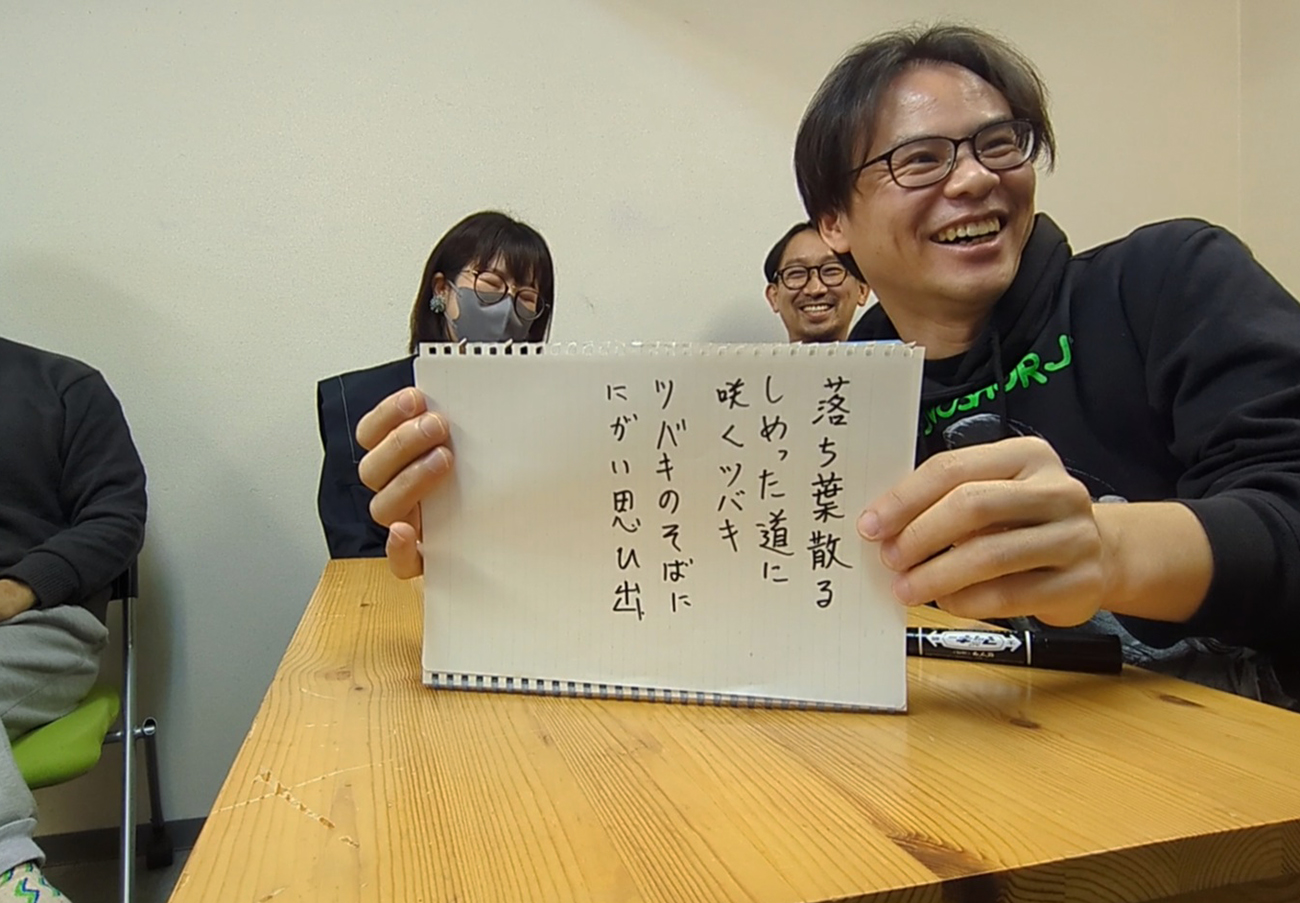 落ち葉散る
しめった道に
咲くツバキ
ツバキのそばに
にがい思ひ出